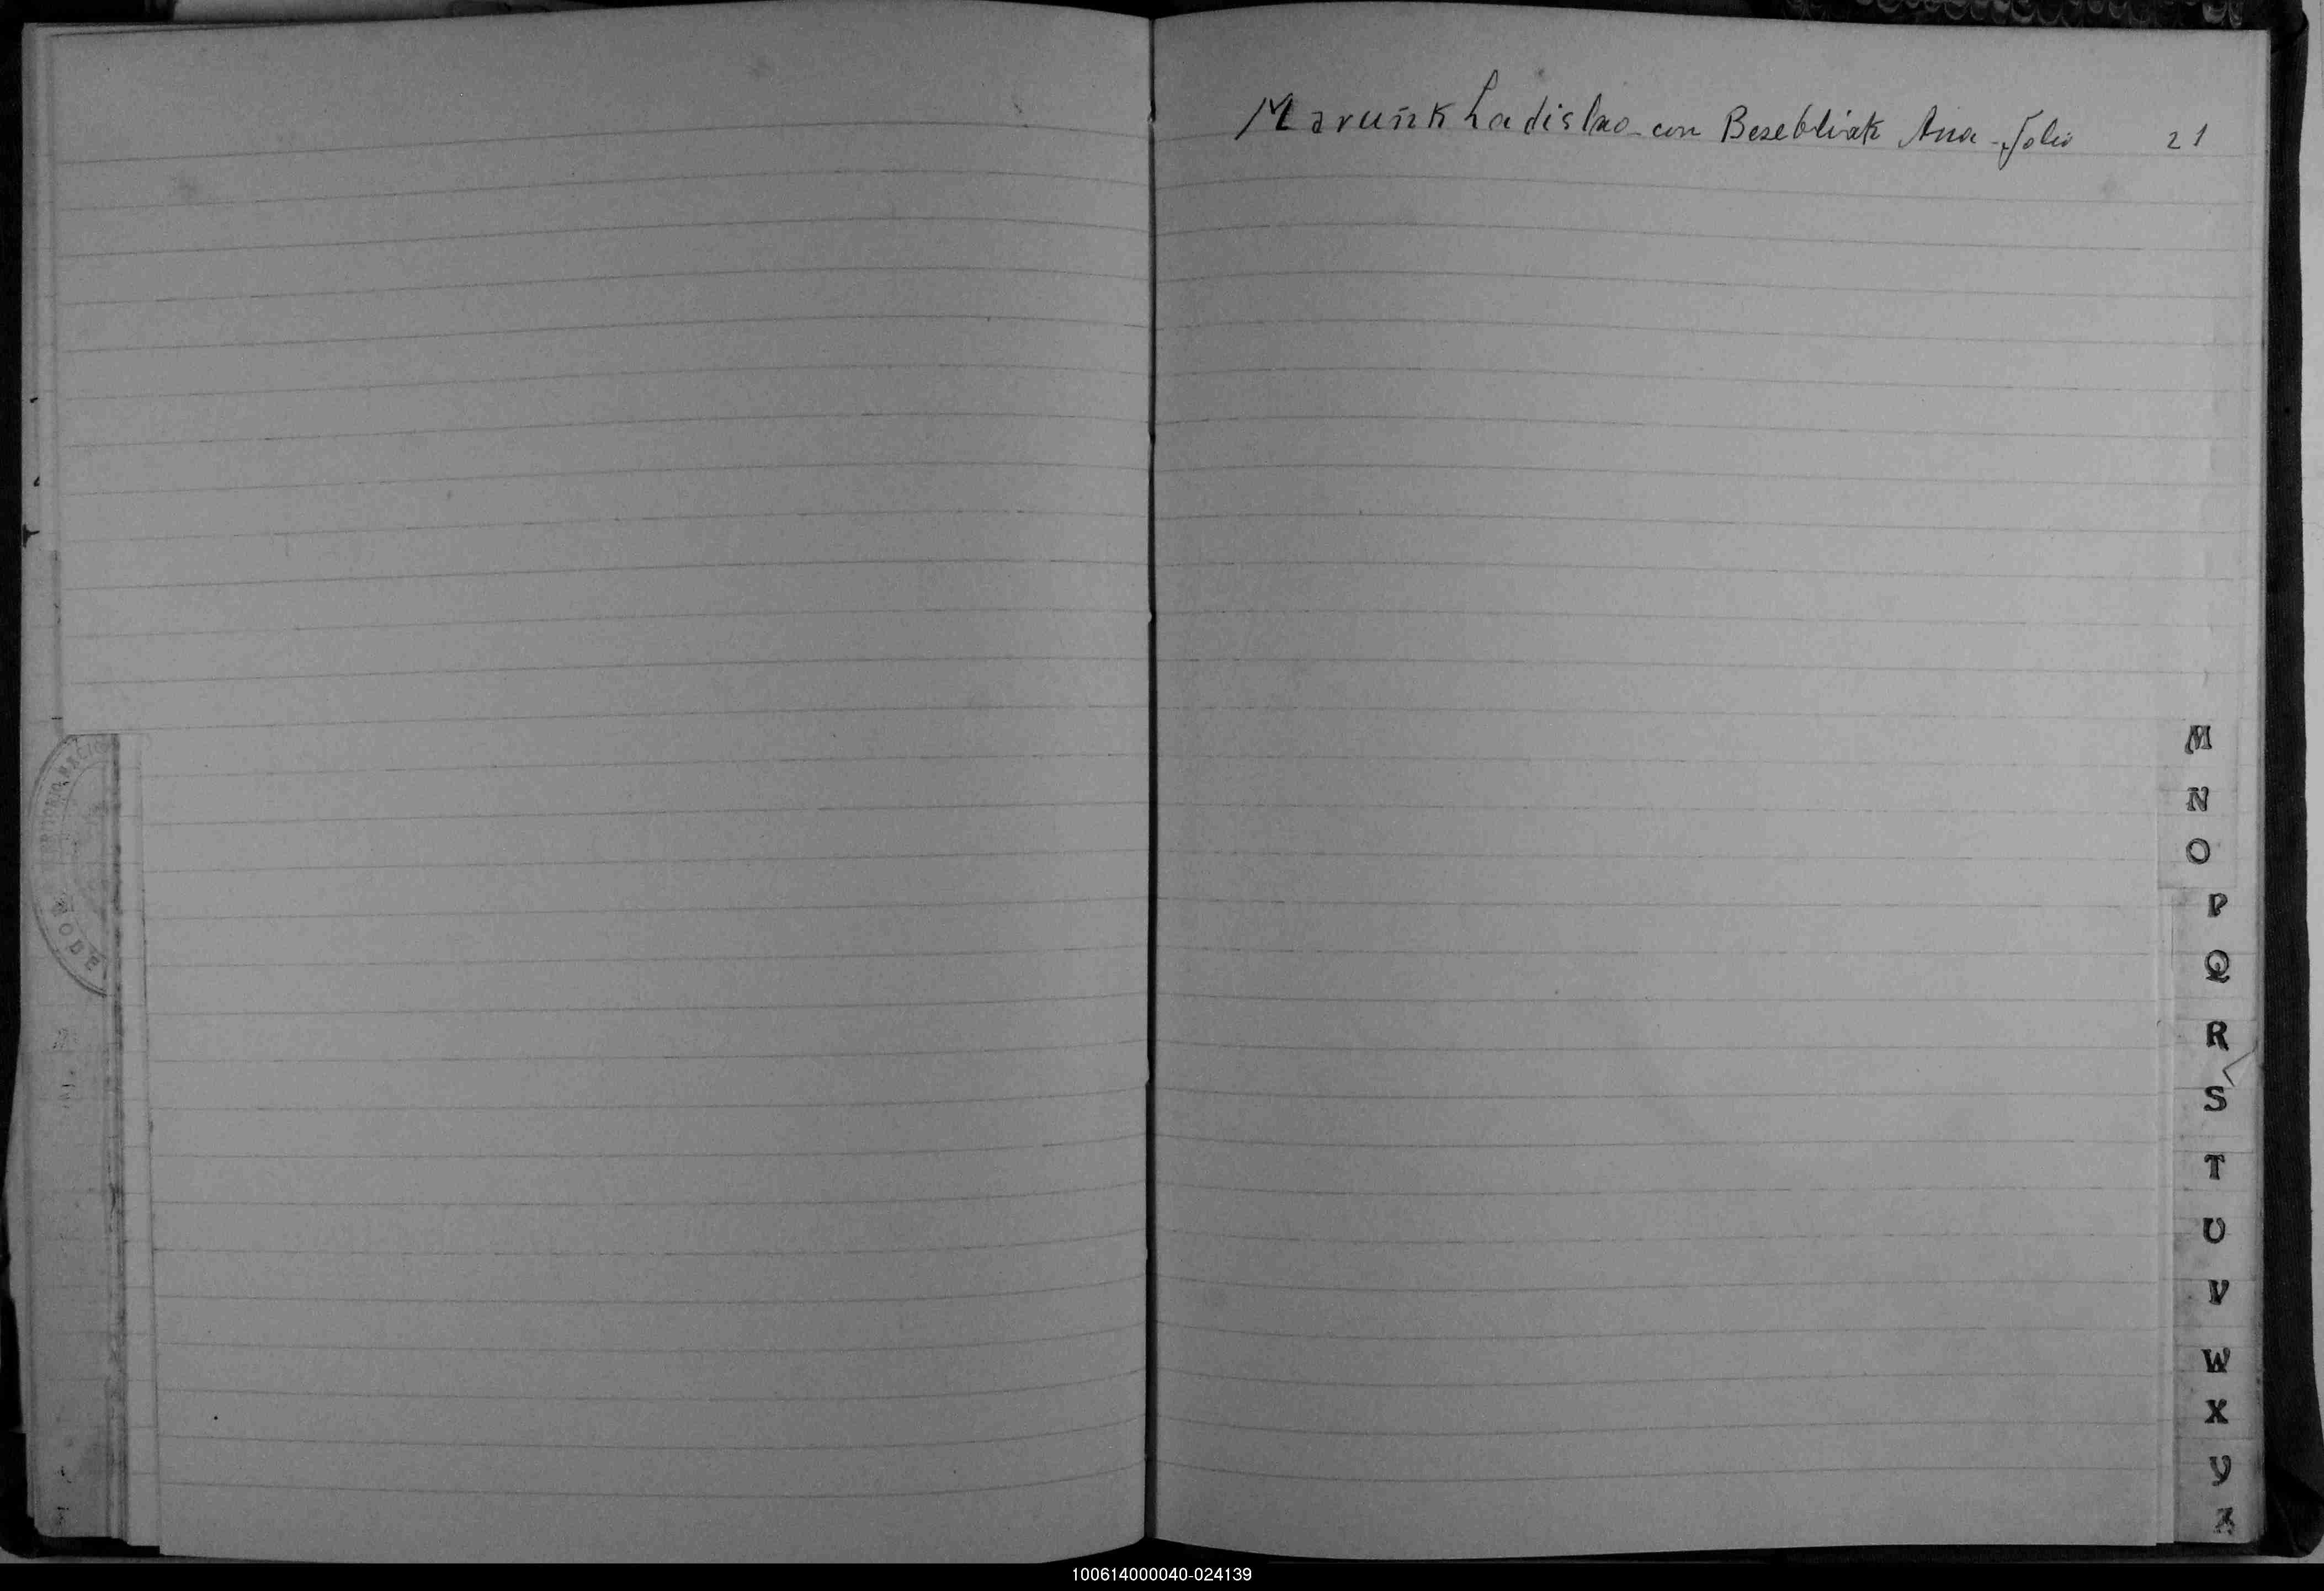 Marunk Ladislao con Besebliak Ana - Folio 21
M
N
O
P
Q
R
S
T
U
V
W
X
Y
Z
100614000040-024139